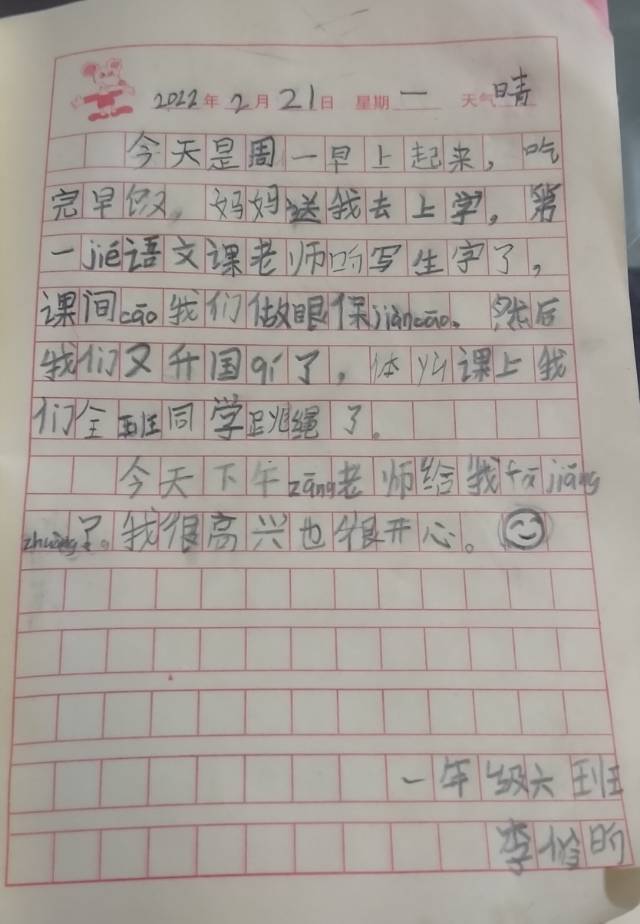 2022年2月21日 星期一 天气晴
今天是周一早上起来，吃
完早饭，妈妈送我去上学，第
一jié语文课老师听写生字了，
课间cāo我们做眼保jiàncāo。然后
我们又升国qí了，体育课上我
们全班同学跳绳了。
今天下午zāng老师给我fā jiǎng
zhuàng了。我很高兴也很开心。
一年级六班
李修昕